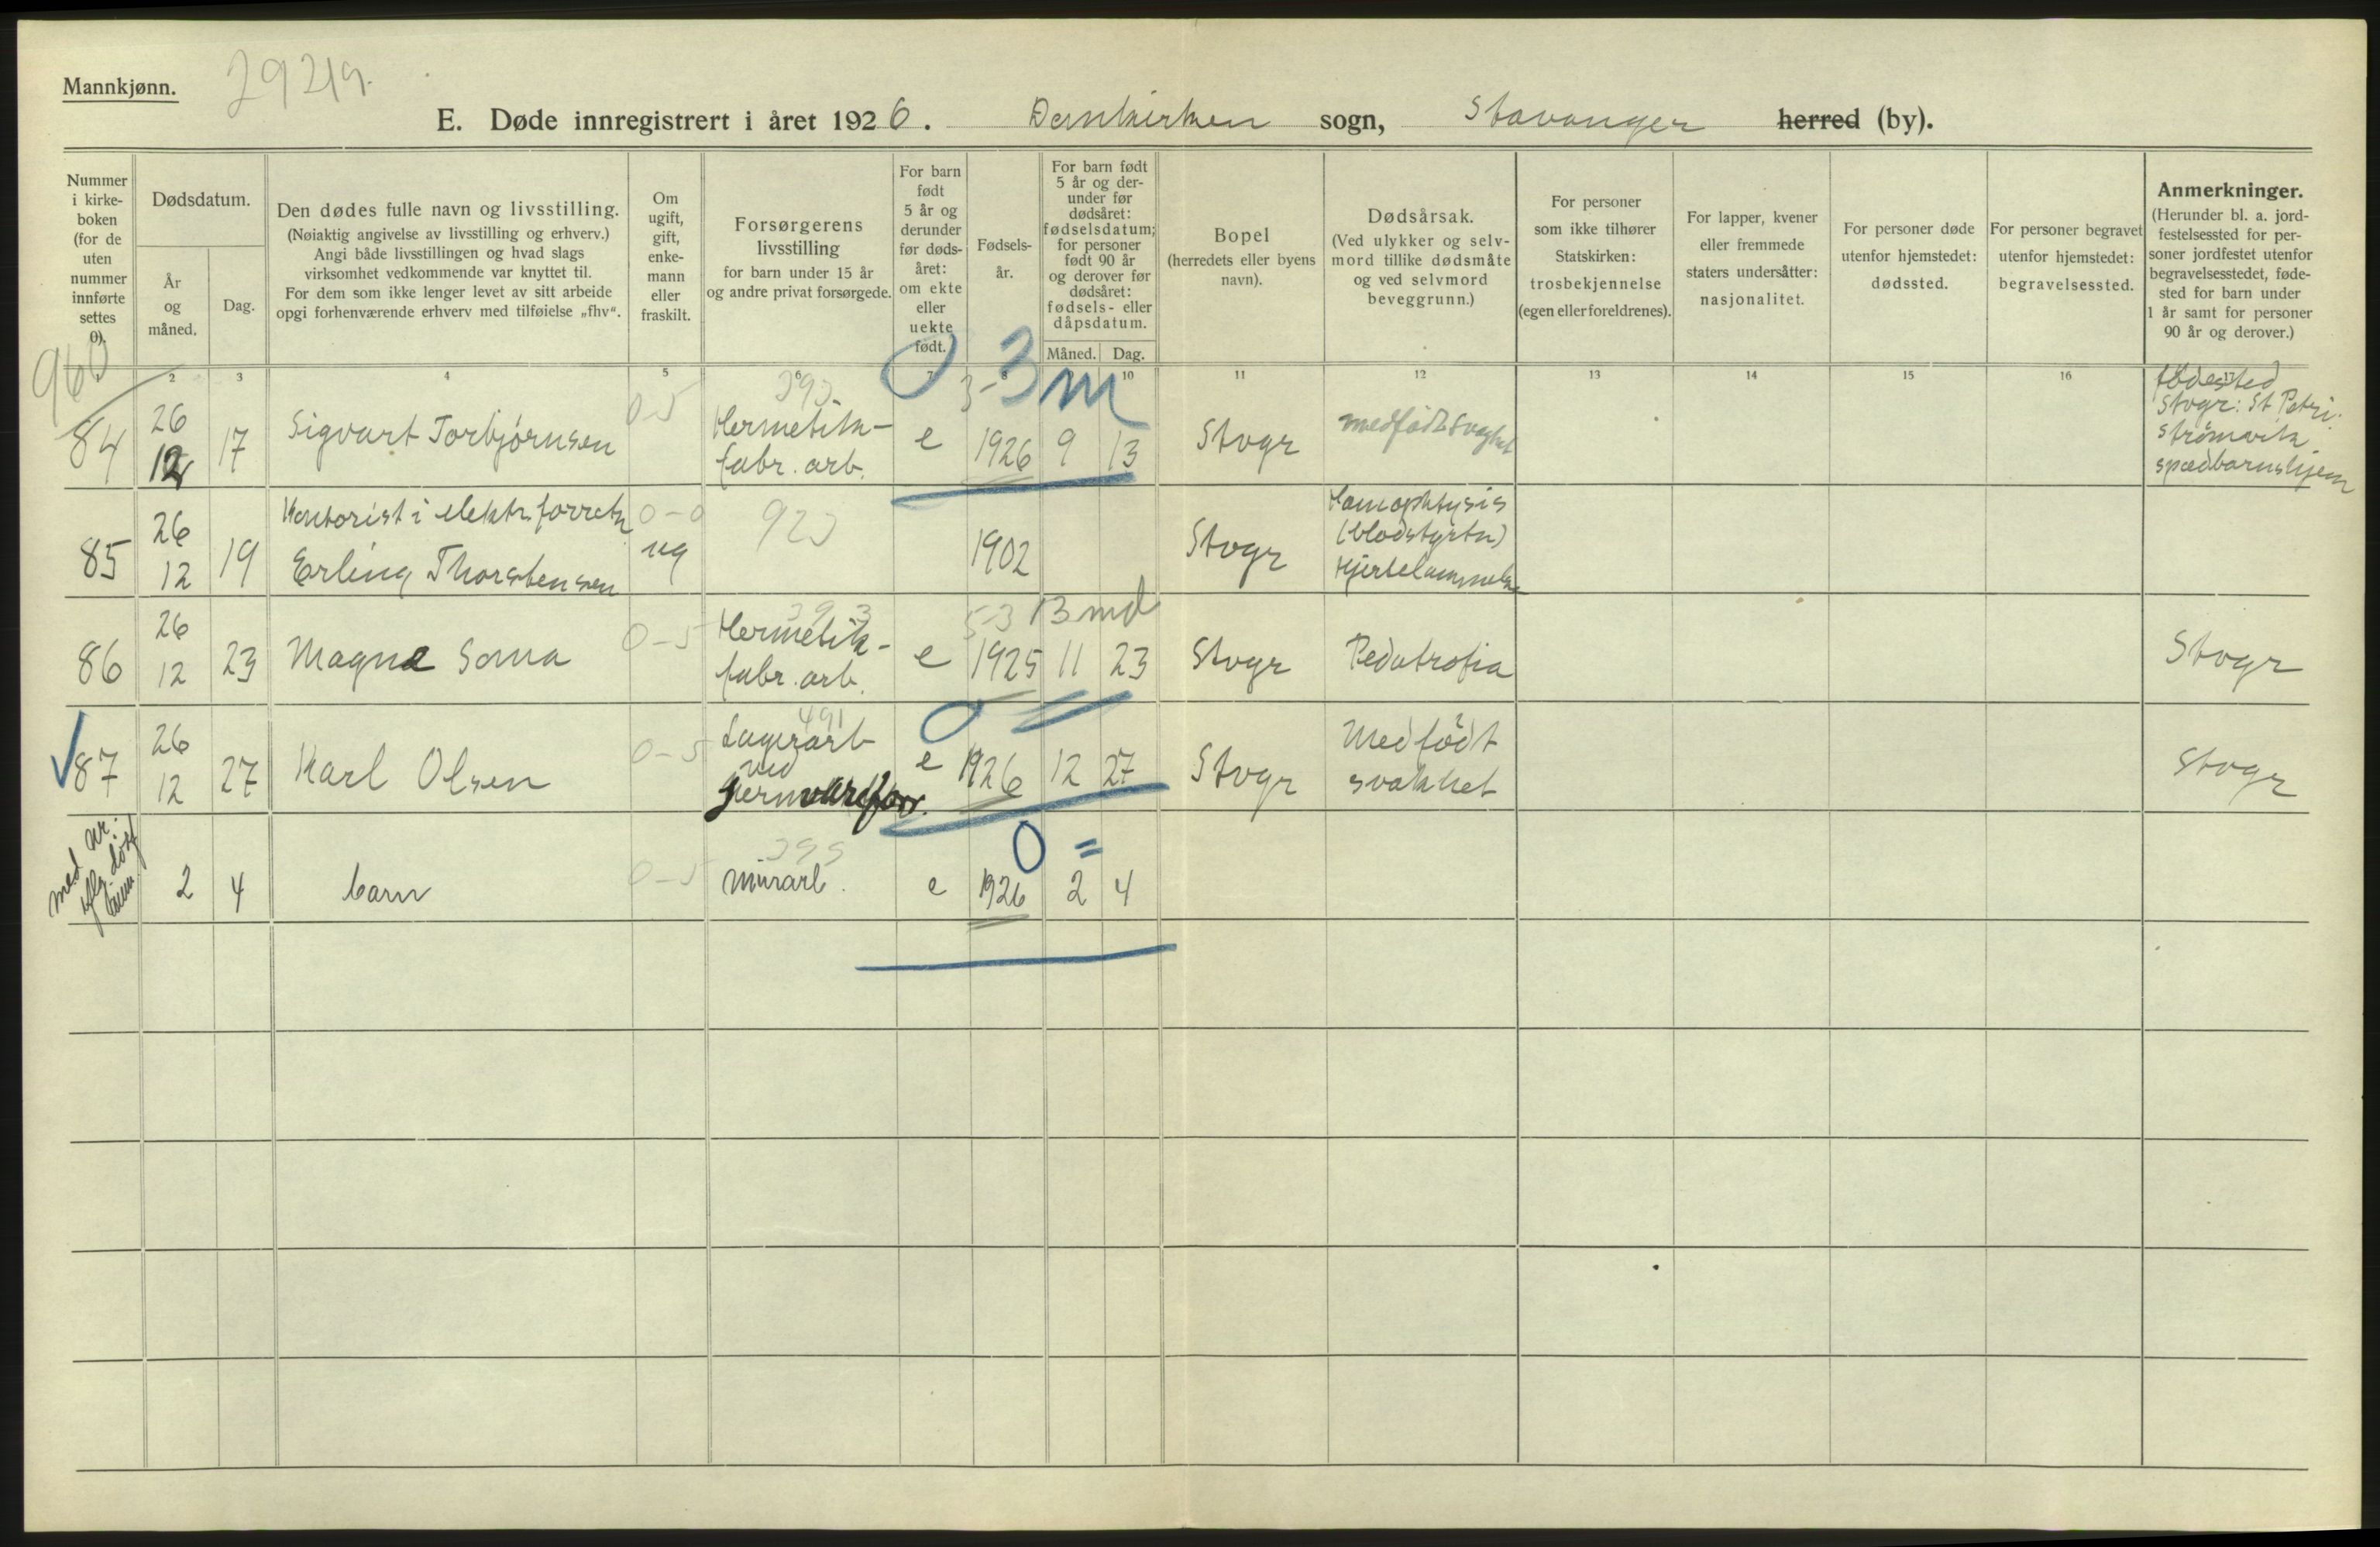 Mannkjønn.
E. Døde innregistrert i året 1926. Domkirken sogn, Stavanger herred (by).
Nummer
i kirke-
boken
(for de
uten
nummer
innførte
settes
0).
Dødsdatum.
År
og
måned.
Dag.
Den dødes fulle navn og livsstilling.
(Nøiaktig angivelse av livsstilling og erhverv.)
Angi både livsstillingen og hvad slags
virksomhet vedkommende var knyttet til.
For dem som ikke lenger levet av sitt arbeide
opgi forhenværende erhverv med tilføielse „fhv“.
Om
ugift,
gift,
enke-
mann
eller
fraskilt.
Forsørgerens
livsstilling
for barn under 15 år
og andre privat forsørgede.
For barn
født
5 år og
derunder
før døds-
året:
om ekte
eller
uekte
født.
Fødsels-
år.
For barn født
5 år og der-
under før
dødsåret:
fødselsdatum;
for personer
født 90 år
og derover før
dødsåret:
fødsels- eller
dåpsdatum.
Måned. Dag.
Bopel
(herredets eller byens
navn).
Dødsårsak.
(Ved ulykker og selv-
mord tillike dødsmåte
og ved selvmord
beveggrunn.)
For personer
som ikke tilhører
Statskirken:
trosbekjennelse
(egen eller foreldrenes).
For lapper, kvener
eller fremmede
staters undersåtter:
nasjonalitet.
For personer døde
utenfor hjemstedet:
dødssted.
For personer begravet
utenfor hjemstedet:
begravelsessted.
Anmerkninger.
(Herunder bl. a. jord-
festelsessted for per-
soner jordfestet utenfor
begravelsesstedet, føde-
sted for barn under
1 år samt for personer
90 år og derover.)
960
2 3 4 5 6 7 8 10 11 12 13 14 15 16 17
84
26
12
17
Sigvart Torbjørnsen
0-5
393
Hermetik-
fabr. arb.
e
0 3-3 m
1926 9 13
Stvgr
medfødt svaghet
fødested
Stvgr: St Petri.
Strømvik
spædbarnshjem
85
26
12
19
Kontorist i elektr. forretn
Erling Thorstensen
0-0
ug
923
1902
Stvgr
Hæmoptysis
(blodstyrtn)
Hjertelammelse
86
26
12
23
Magne Soma
0-5
393
Hermetik-
fabr. arb.
e
5-3 13 md
1925 11 23
Stvgr
Pedatrofia
Stvgr
87
26
12
27
Karl Olsen
0-5
491
Lagerarb
ved
jernvareforr.
e
0
1926 12 27
Stvgr
Medfødt
svakhet
Stvgr
2 4
barn
0-5
395
murarb.
e
0 =
1926 2 4